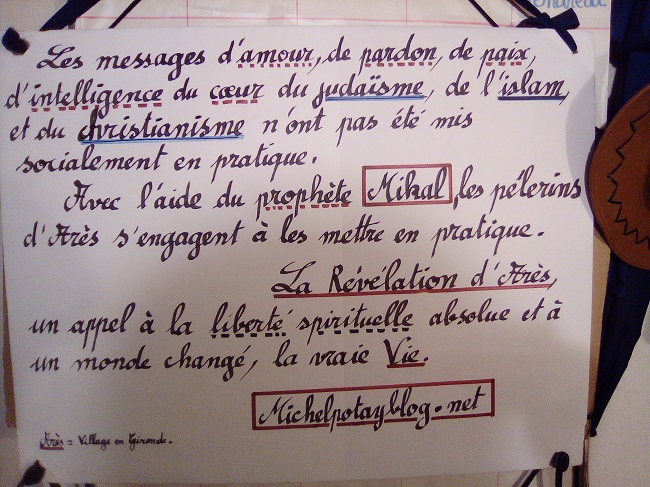 Les messages d'amour, de pardon, de paix,
d'intelligence du cœur du judaïsme, de l'islam,
et du christianisme n'ont pas été mis
socialement en pratique.
Avec l'aide du prophète Mikal, les pélerins
d'Arès s'engagent à les mettre en pratique.
La Révélation d'Arès,
un appel à la liberté spirituelle absolue et à
un monde changé, la vraie Vie.
Michelpotayblog.net
Arès = Village en Gironde.